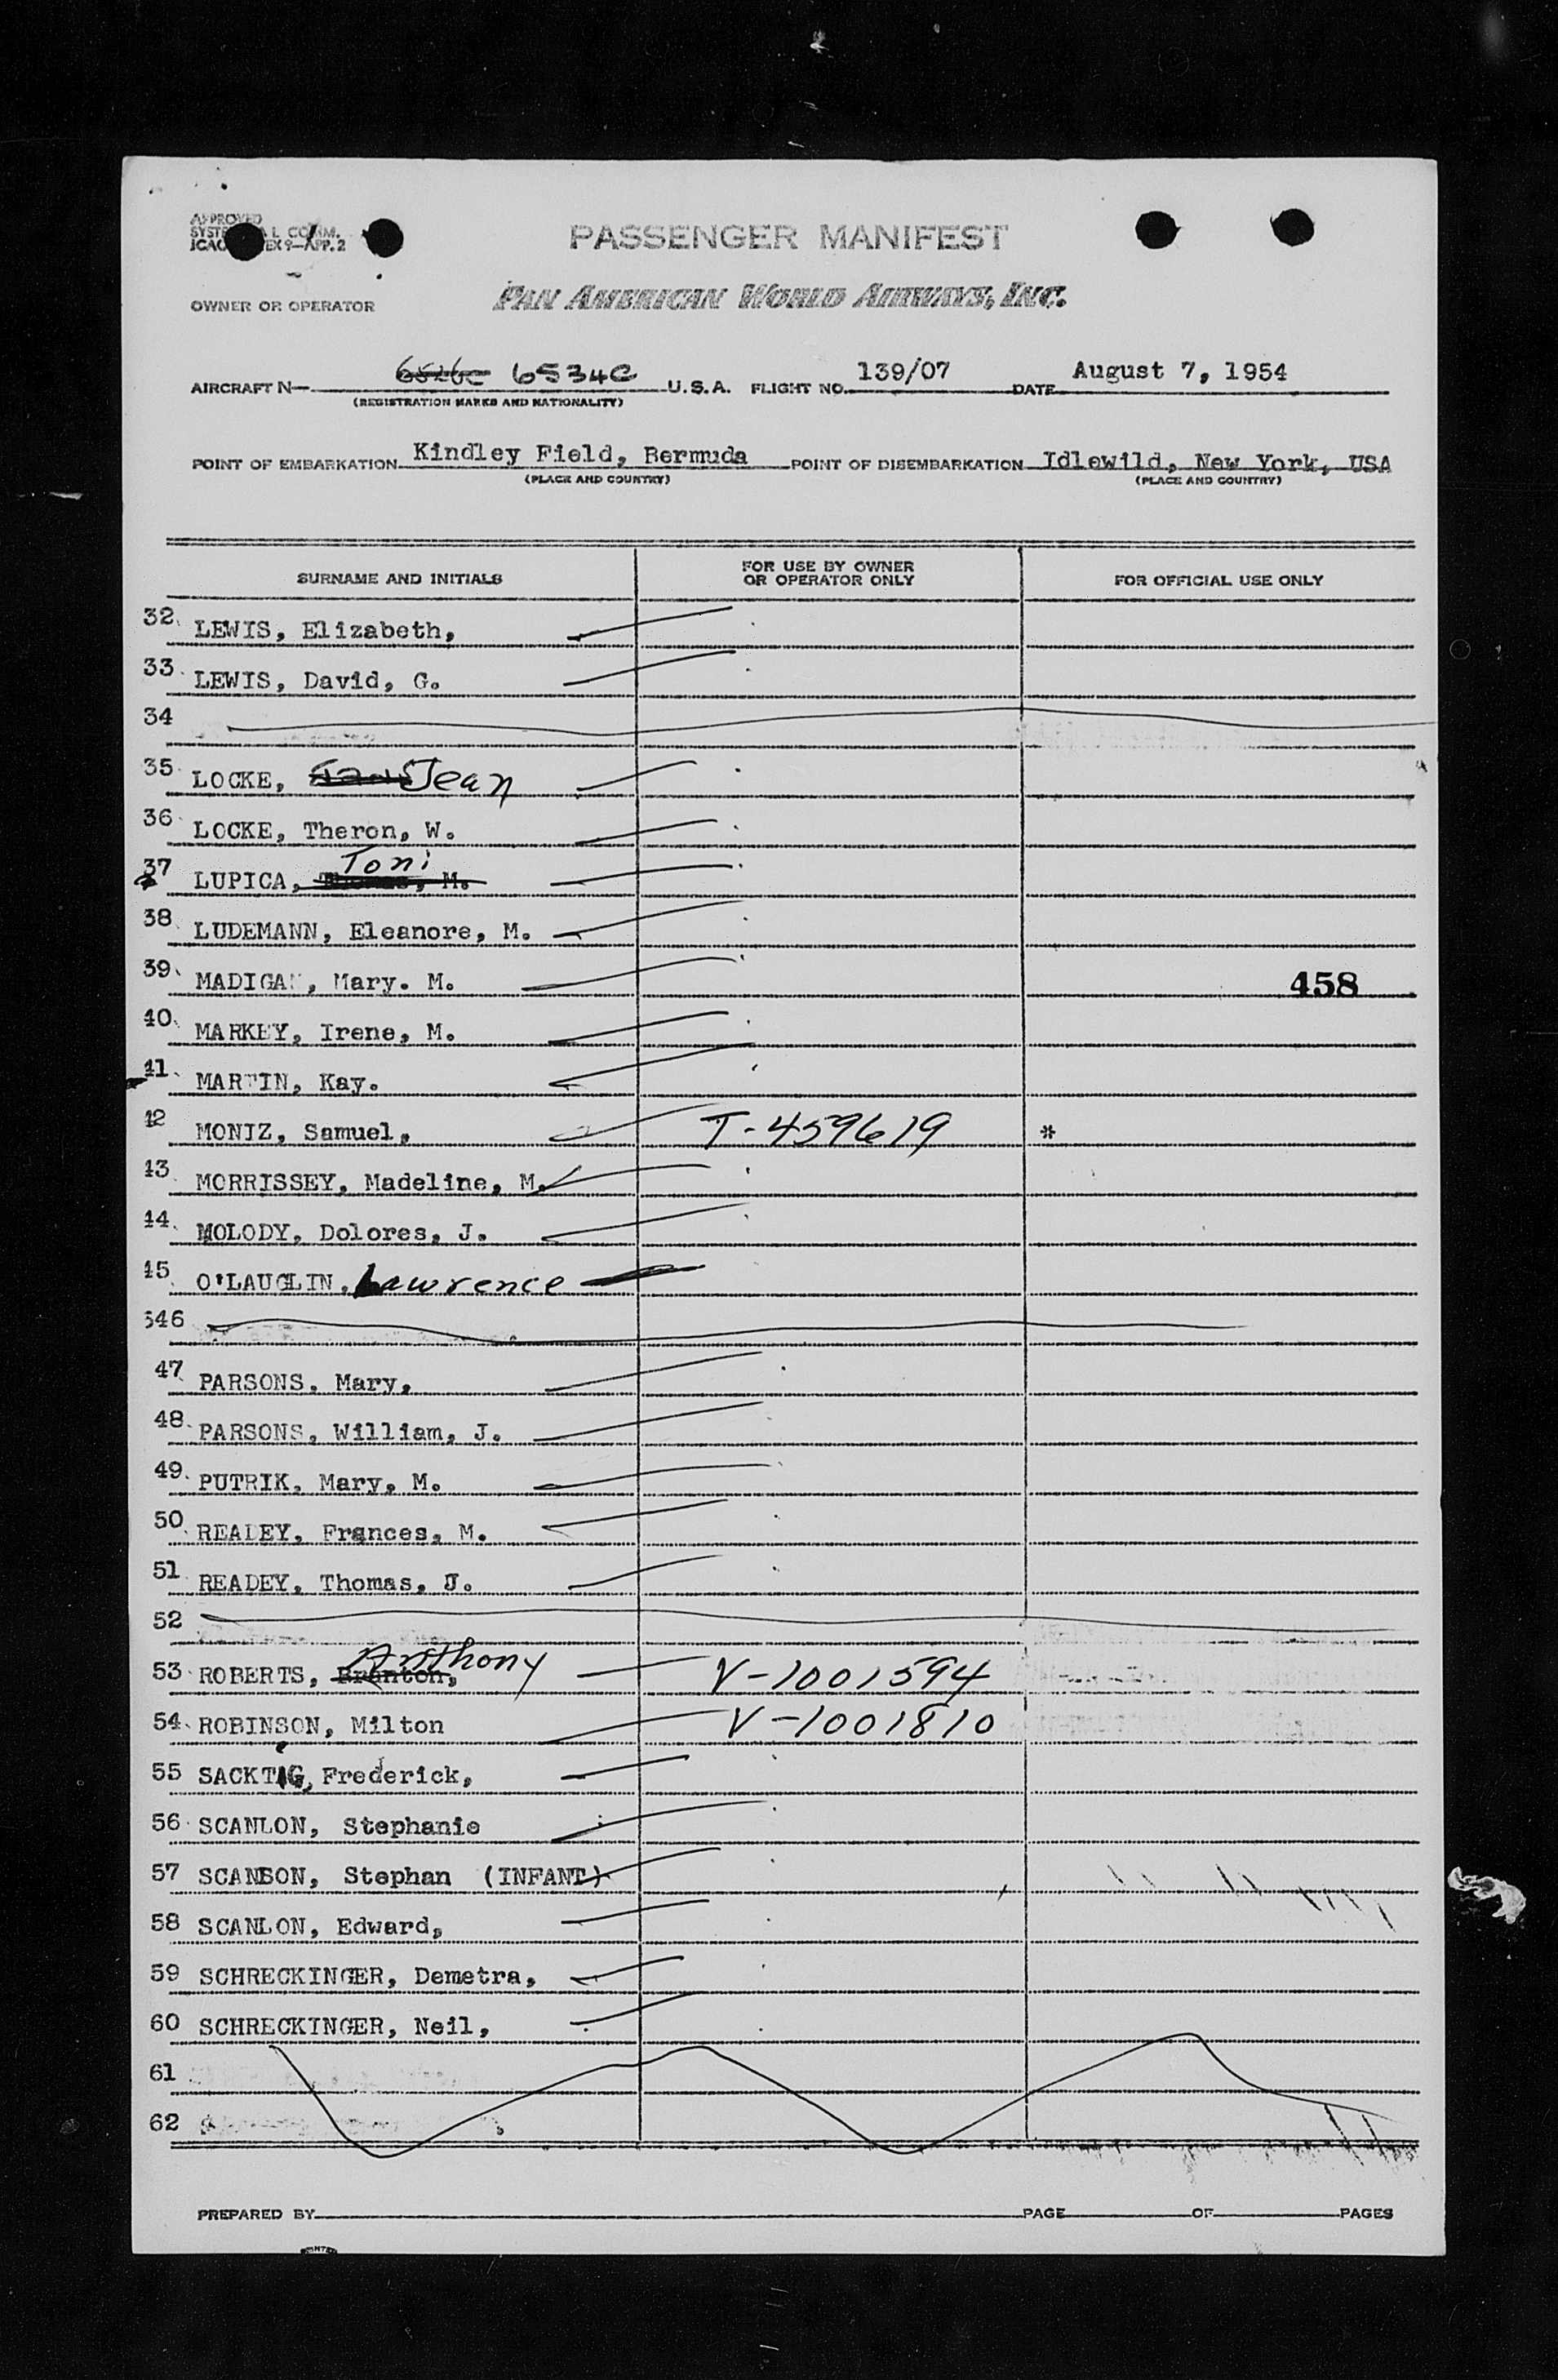 APPROVED
PASSENGER MANIFEST
OWNER OR OPERATOR PAN AMERICAN WORLD AIRWAYS, INC.
AIRCRAFT N— 6534C U.S.A. FLIGHT NO. 139/07 DATE August 7, 1954
(REGISTRATION MARKS AND NATIONALITY)
POINT OF EMBARKATION Kindley Field, Bermuda POINT OF DISEMBARKATION Idlewild, New York, USA
(PLACE AND COUNTRY) (PLACE AND COUNTRY)
SURNAME AND INITIALS FOR USE BY OWNER OR OPERATOR ONLY FOR OFFICIAL USE ONLY
32. LEWIS, Elizabeth,
33. LEWIS, David, G.
34
35. LOCKE, Jean
36. LOCKE, Theron, W.
37 LUPICA, Toni M.
38. LUDEMANN, Eleanore, M.
39. MADIGAN, Mary. M. 458
40. MARKEY, Irene, M.
41. MARTIN, Kay.
42 MONIZ, Samuel, T-459619 *
43. MORRISSEY, Madeline, M.
44. MOLODY, Dolores, J.
45 O'LAUGLIN, Lawrence
46
47 PARSONS, Mary,
48. PARSONS, William, J.
49. PUTRIK, Mary, M.
50 Frances, M.
51 READEY, Thomas, J.
52
53. ROBERTS, Branton, Anthony V-1001594
54. ROBINSON, Milton V-1001810
55 Frederick,
56. SCANLON, Stephanie
57 Stephan (INFANT)
58 SCANLON, Edward,
59 SCHRECKINGER, Demetra,
60 SCHRECKINGER, Neil,
61
62
PREPARED BY PAGE OF PAGES